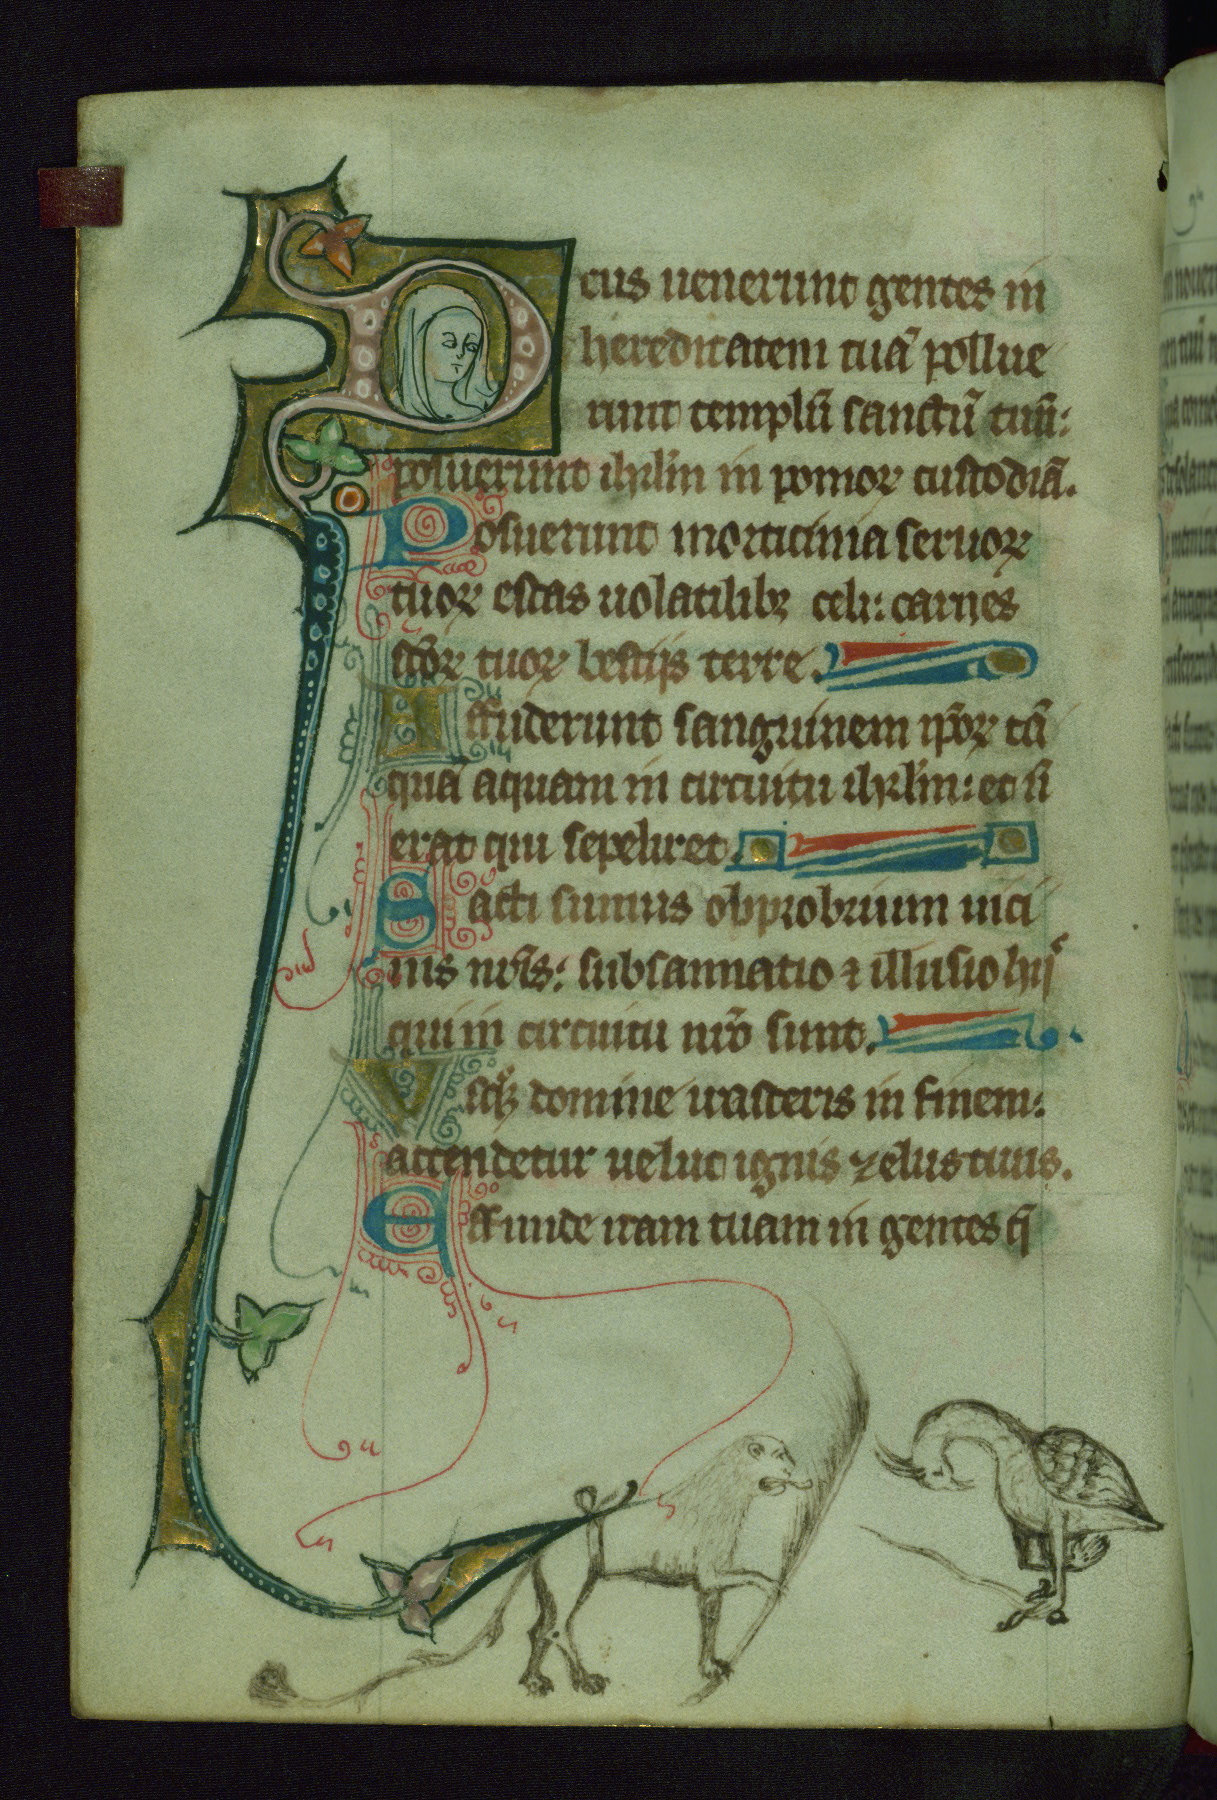 Deus uenerunt gentes in
hereditatem tuā pollue
runt templū sanctū tuū:
posuerunt ihrl̄m in pomoꝝ custodiā.
Posuerunt morticinia seruoꝝ
tuoꝝ escas uolatilibꝫ celi: carnes
sc̄oꝝ tuoꝝ bestijs terre.
Effuderunt sanguinem ip̄oꝝ tā
quā aquam in circuitu ihrl̄m: et ñ
erat qui sepeliret.
Facti sumus obprobrium uici
nis nr̄is: subsannatio ⁊ illusio hijˢ
qui in circuitu nr̄o sunt.
Vsqꝫ domine irasceris in finem:
accendetur uelut ignis zelus tuus.
Effunde iram tuam in gentes q̄